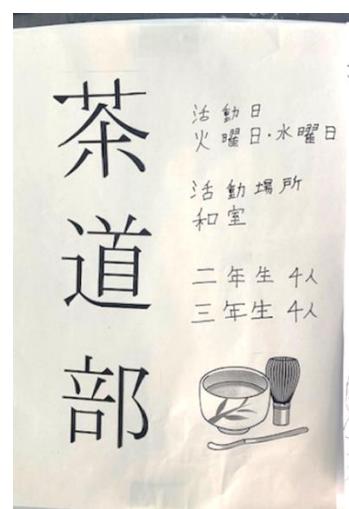 茶道部
活動日
火曜日・水曜日
活動場所
和室
二年生 4人
三年生 4人